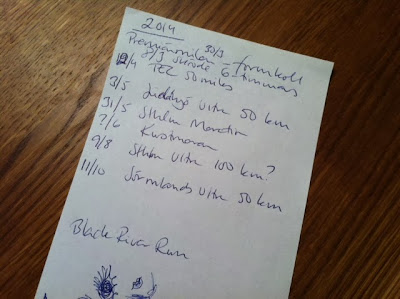 2014
30/3
Premiärmilen - formkoll
8/3 Skövde 6 timmars
12/4 TEC 50 miles
3/5 Lidingö Ultra 50 km
31/5 Sthlm Maraton
?/6 Kustmaran
9/8 Sthlm Ultra 100 km?
11/10 Sörmlands Ultra 50 km
Black River Run